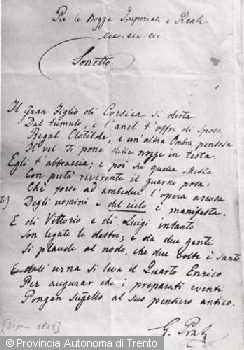 Per le Nozze Imperiali e Reali
Sonetto
Il Gran Figlio di Corsica si desta
Dal tumulo, e l'anel t'offre di sposa
Regal Clotilde, e un'altra Ombra pensosa
delle nozze in testa.
Egli t'abbraccia, e poi su quella
Con pietà reverente il guardo posa
Che porse ad ambedue l'opera ascosa
Degli uomini e del cielo è manifesta.
E di Vittorio e di Luigi intanto
Son legate le destre, e da due genti
Si plaude al nodo che due volte è santo
urna si leva il Quarto Enrico
Per augurar che i preparati eventi
Pongan suggello al suo pensiero antico.
G. Prati
© Provincia Autonoma di Trento